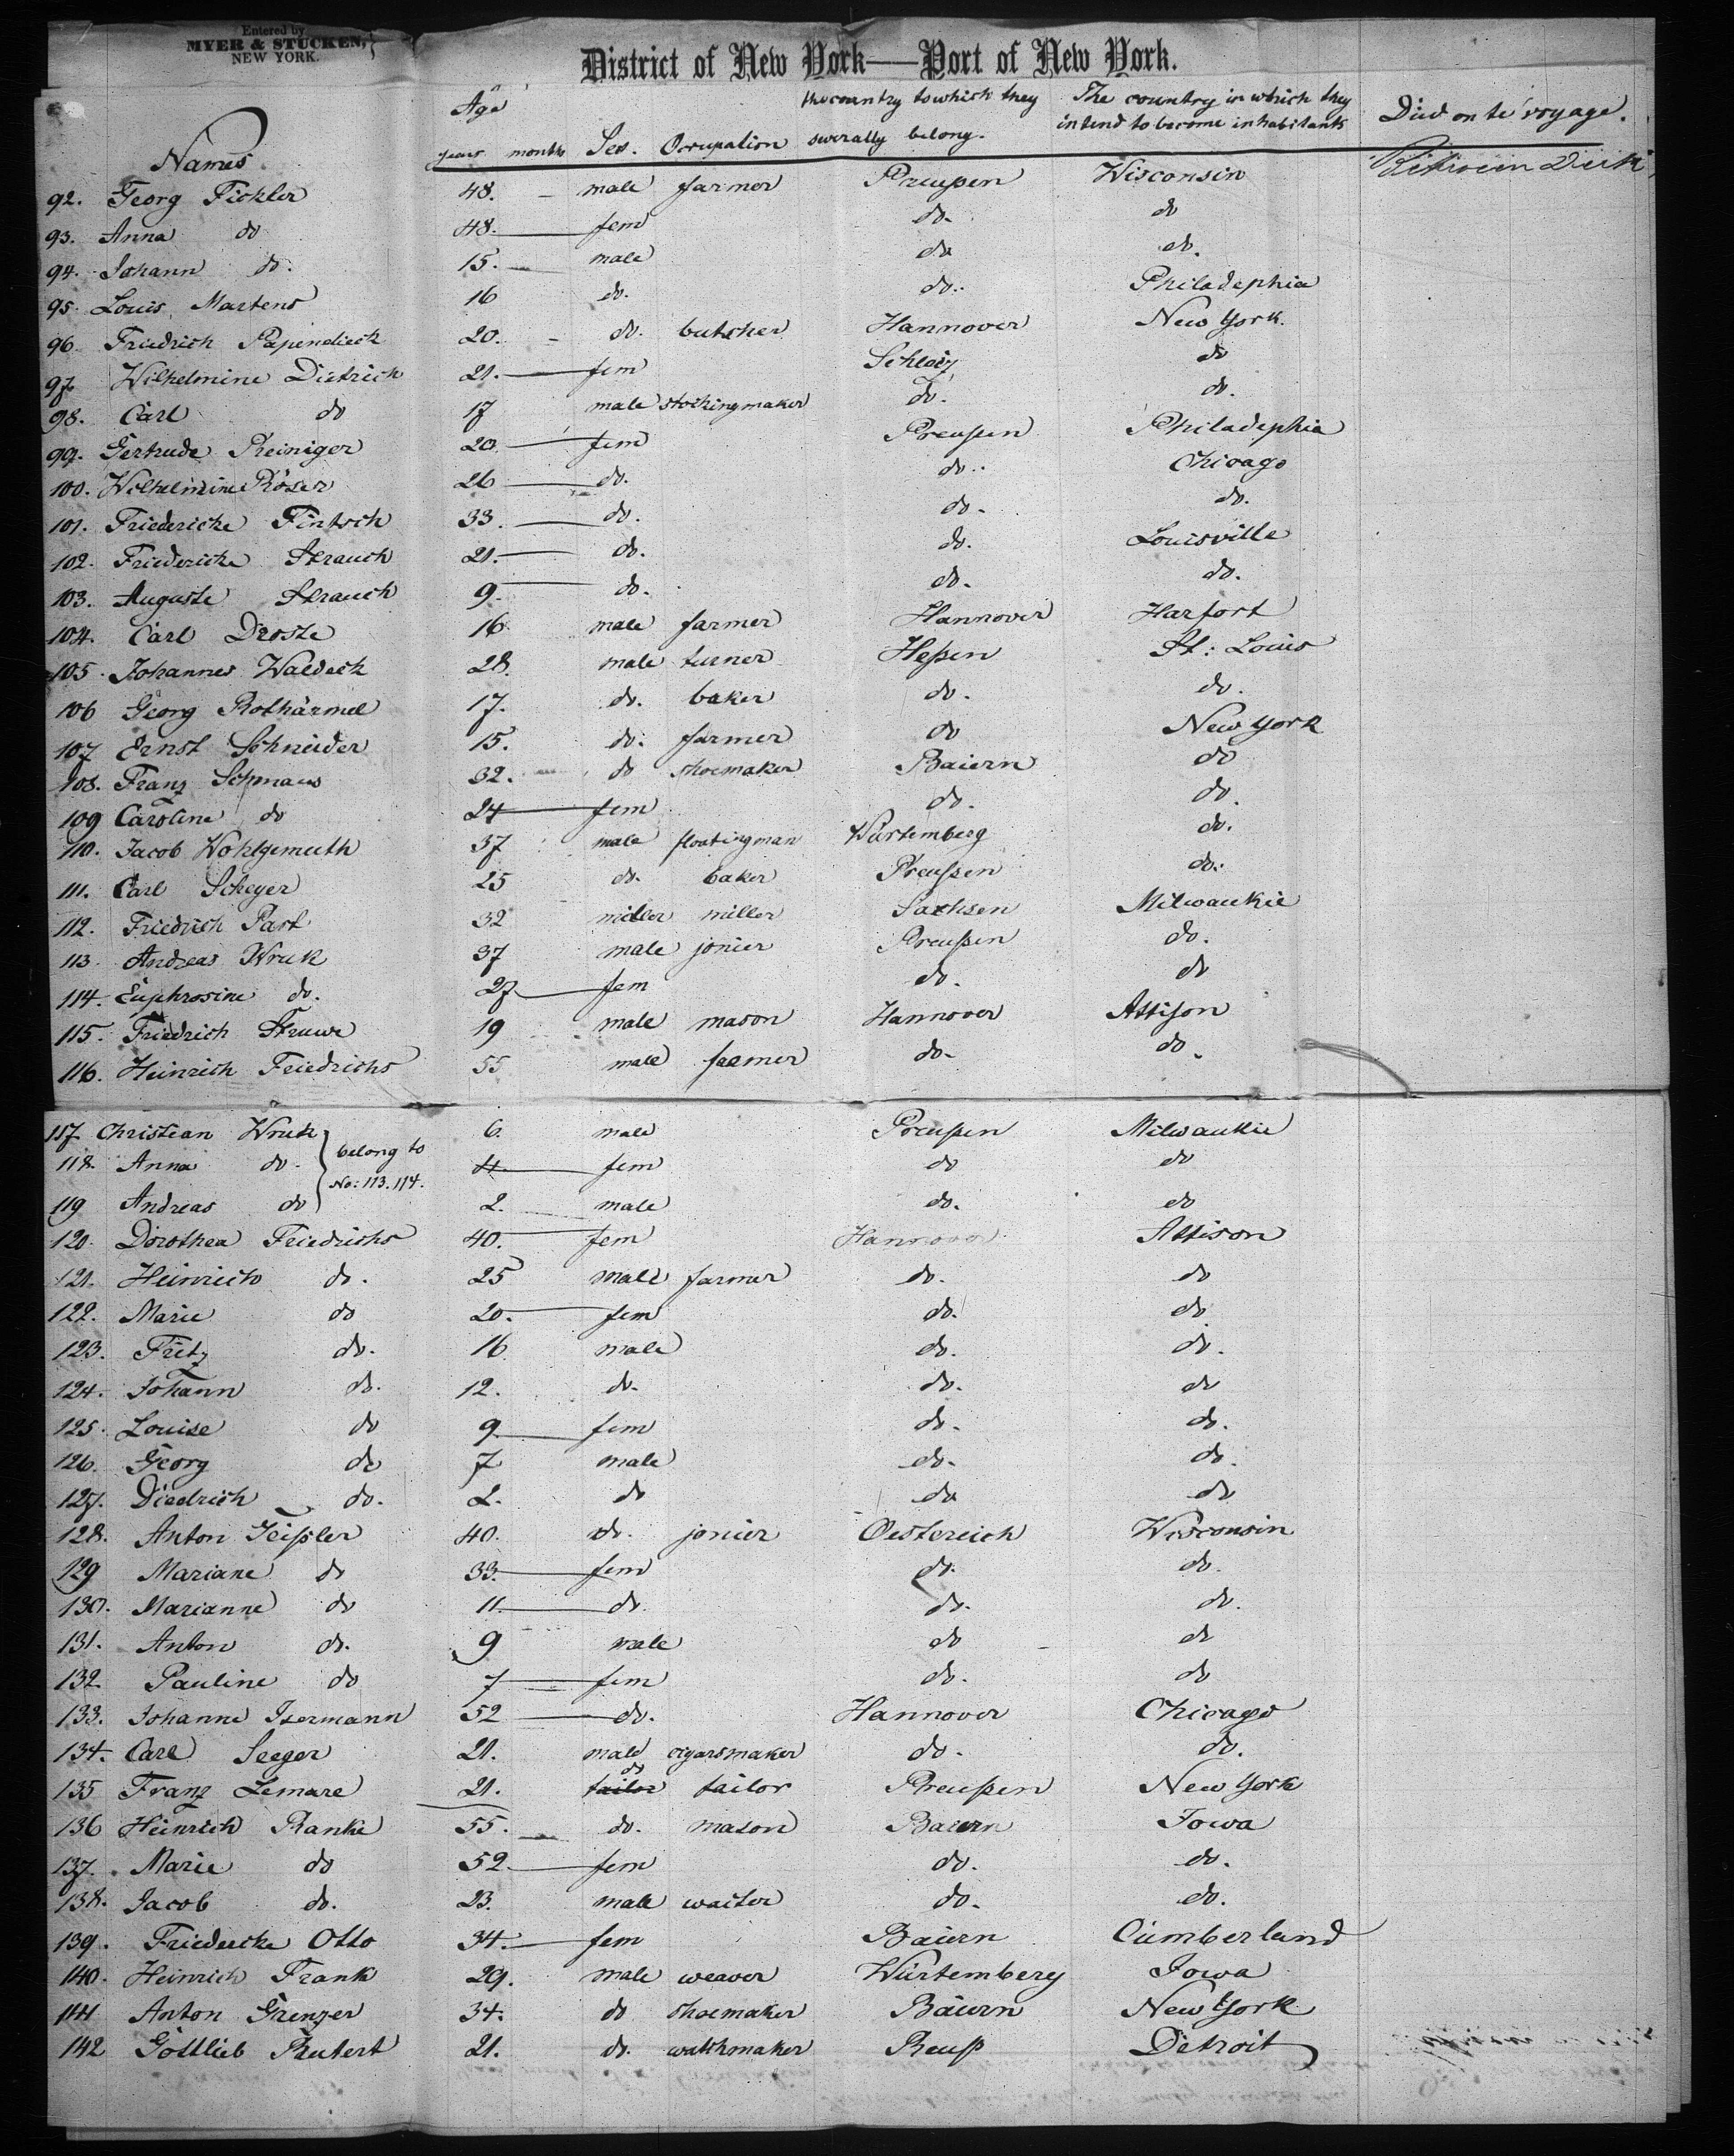 Entered by
MYER & STUCKEN,
NEW YORK.
District of New York—Port of New York.
Names Age years months Sex. Occupation the country to which they severally belong. The country in which they intend to become inhabitants Died on te voyage.
Between Deck
92. Georg Fickler 48. – male farmer Preußen Wisconsin
93. Anna do 48. fem do. do
94. Johann do. 15. male do do.
95. Louis Martens 16 do. do. Philadephia
96. Friedrich Papendieck 20. – do. butcher Hannover New York.
97 Wilhelmine Dietrich 21. fem Schleiz do
98. Carl do 17 male stockingmaker do. do.
99. Gertrude Reiniger 20. fem Preußen Philadephia
100. Wilhelmine Röser 26 do. do. Chicago
101. Friedericke Fintsch 33. do. do. do.
102. Friedericke Strauch 21. do. do. Louisville
103. Auguste Strauch 9. do. do. do.
104. Carl Droste 16. male farmer Hannover Harfort
105. Johannes Waldeck 28. male turner Heßen St: Louis
106 Georg Rothärmel 17. do. baker do. do.
107 Ernst Schneider 15. do. farmer do New York
108. Franz Schmaus 32. do shoemaker Baiern do
109 Caroline do 24 fem do. do.
110. Jacob Wohlgemuth 37 male floatingman Würtemberg do.
111. Carl Scheyer 25 do. baker Preußen do.
112. Friedrich Part 32 miller miller Sachsen Milwaukie
113. Andreas Wruk 37 male jonier Preußen do.
114. Euphrosine do. 27 fem do. do
115. Friedrich Struwe 19 male mason Hannover Attison
116. Heinrich Friedrichs 55 male farmer do. do.
117 Christean Wruk 6. male Preußen Milwaukie
118. Anna do. belong to 4 fem do do
119 Andreas do No: 113. 114. 2. male do. do
120. Dorothea Friedrichs 40. fem Hannover Attison
121. Heinrich do. 25 male farmer do. do
122. Marie do 20. fem do. do
123. Fritz do. 16 male do. do.
124. Johann do. 12. do. do. do
125. Louise do 9 fem do. do.
126. Georg do 7 male do. do.
127. Diedrich do. 2. do do do
128. Anton Teißler 40. do. jonier Oestereich Wisconsin
129 Mariane do 33. fem do. do.
130. Marianne do 11. do. do. do.
131. Anton do. 9 male do do
132 Pauline do 7 fem do. do
133. Johanne Isermann 52 do. Hannover Chicago
134. Carl Seeger 21. male cigarsmaker do. do.
135 Franz Lemare 21. tailor do tailor Preußen New York
136 Heinrich Ranke 55. do. mason Baiern Iowa
137. Marie do 52. fem do. do.
138. Jacob do. 23. male waiter do. do.
139. Friedericke Otto 34. fem Baiern Cumberland
140. Heinrich Frank 29. male weaver Würtemberg Iowa
141 Anton Grenzer 34. do shoemaker Baiern New York
142 Gottlieb Rutert 21. do. watchmaker Reuß Detroit